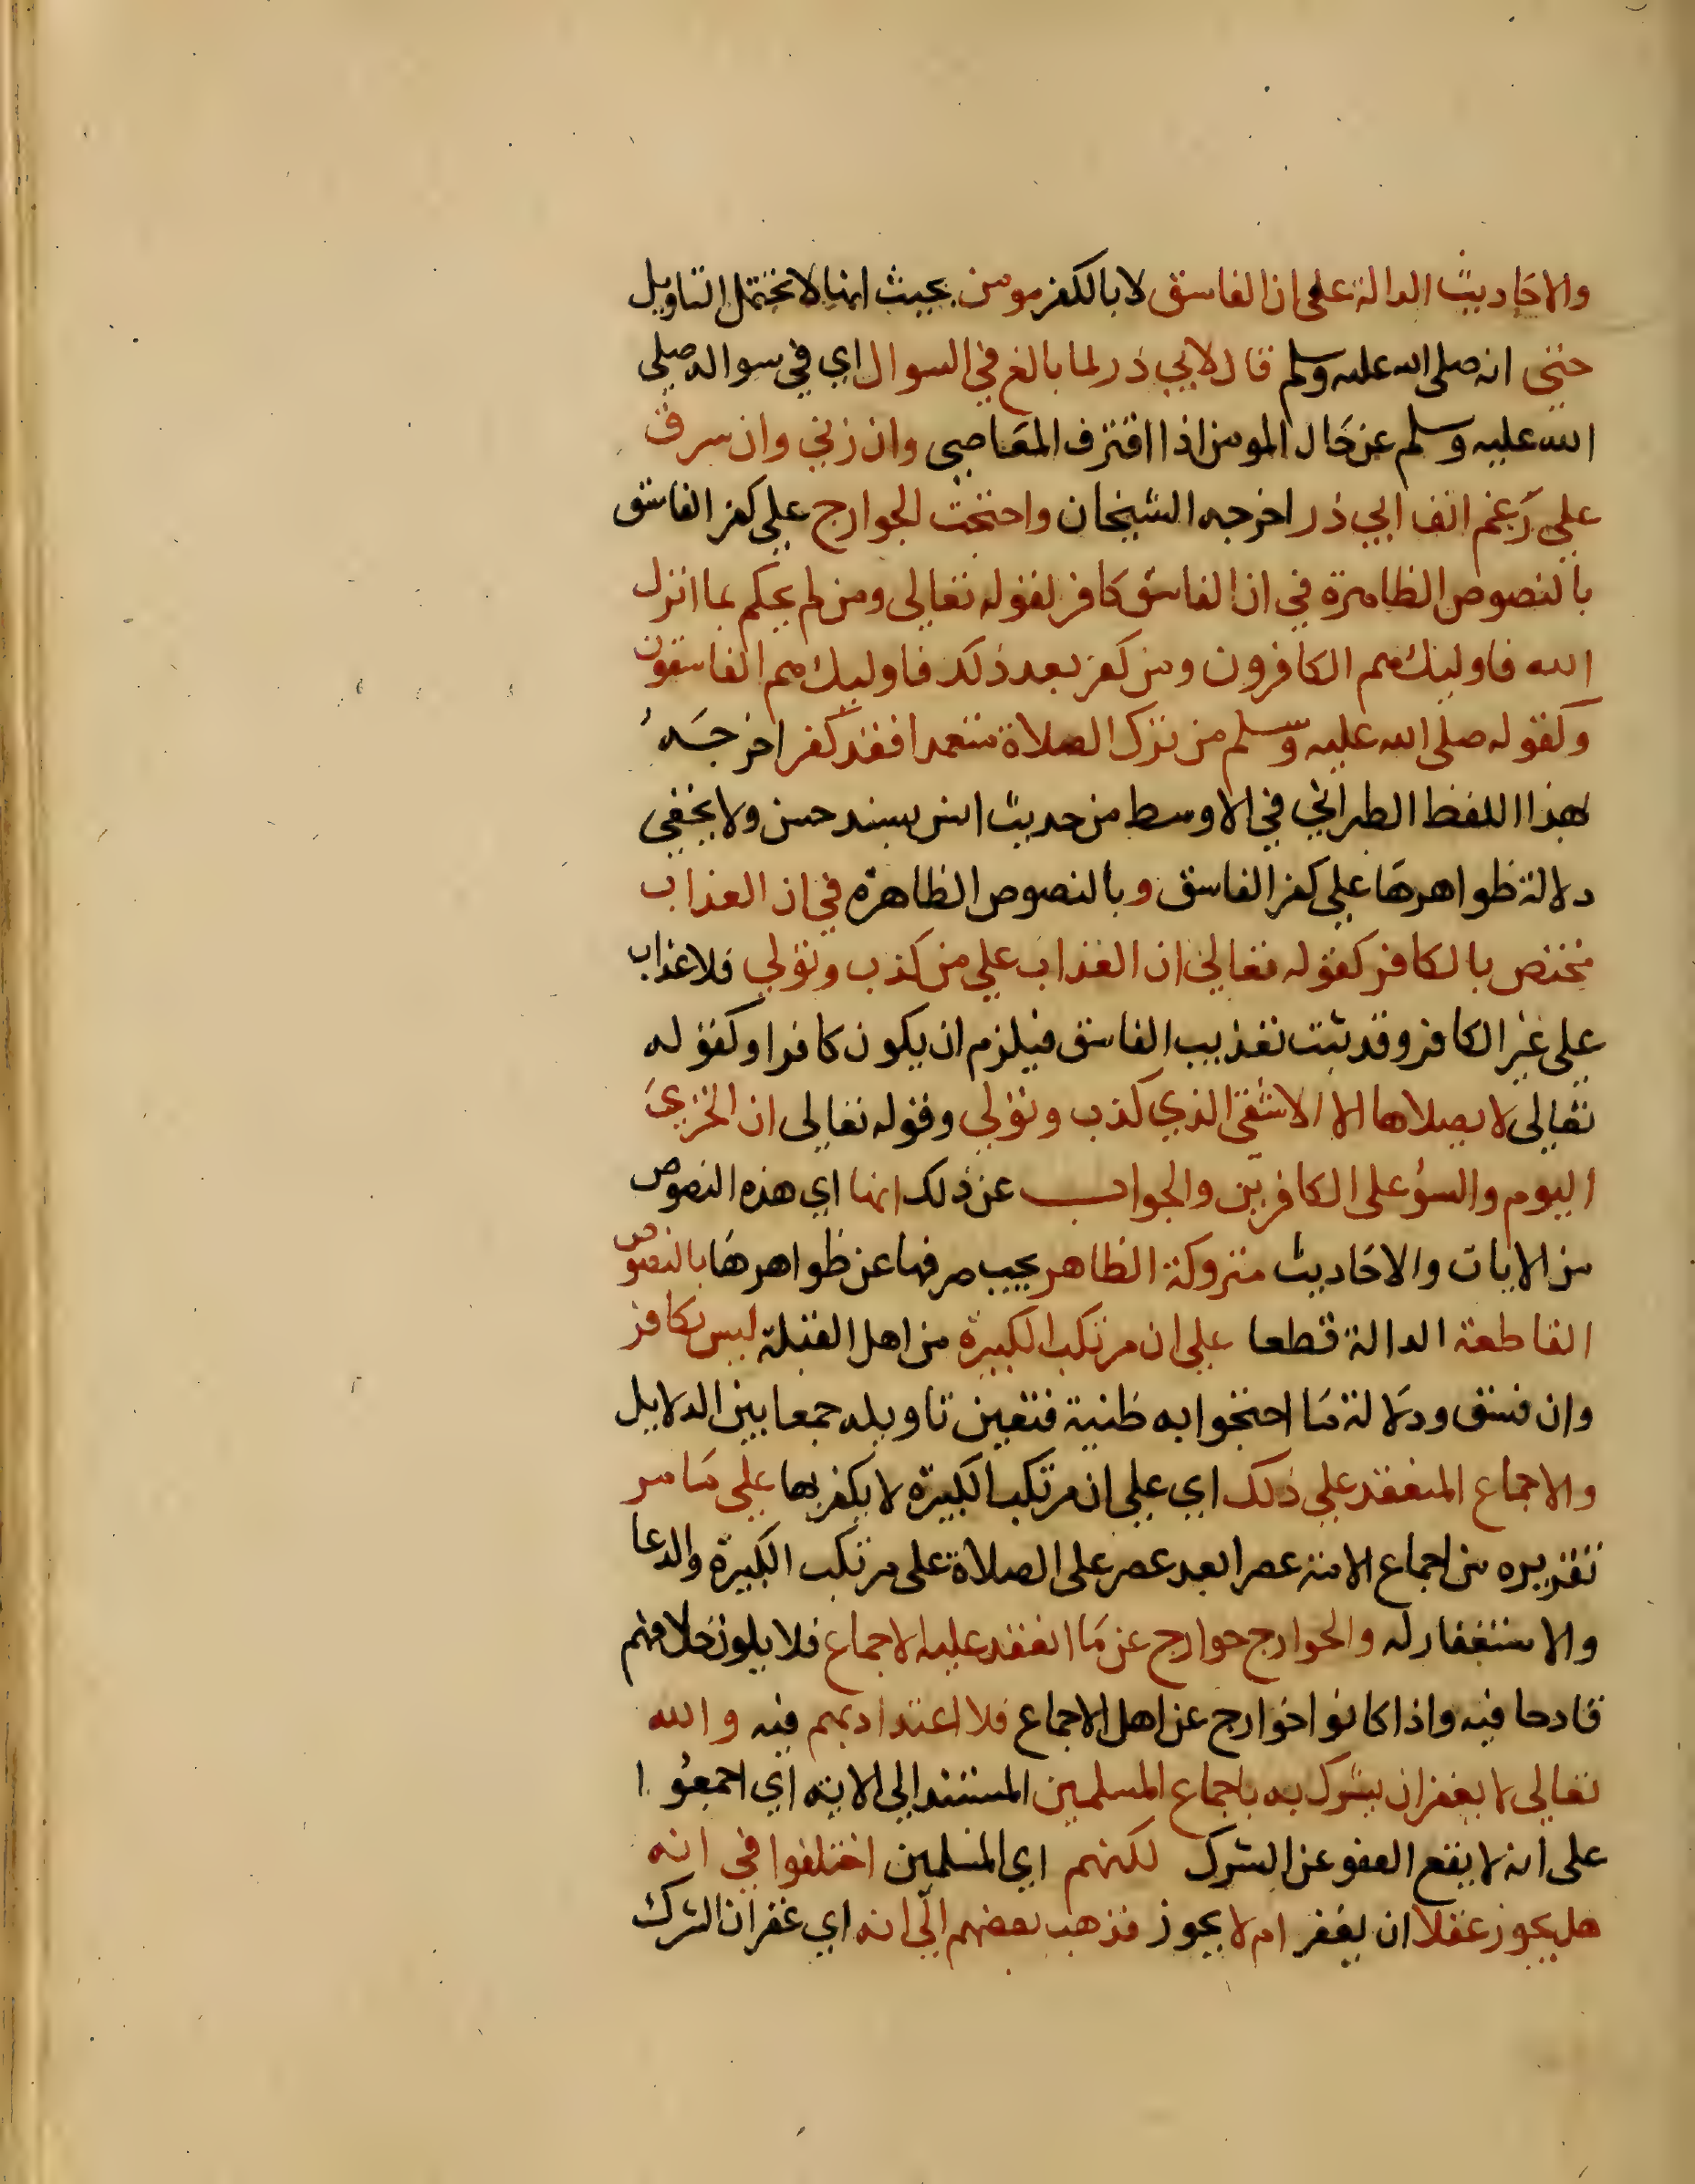 والاحاديث الدالة على ان الفاسق لا بالكفر مومن بحيث انها لا تحتمل التاويل
حتى انه صلى الله عليه وسلم قال لابي ذر لما بالغ في السوال اي في سواله صلى
الله عليه وسلم عن حال المومن اذا اقترف المعاصي وان زني وان سرق
علي رغم انف ابي ذر اخرجه الشيخان واحتجت الخوارج علي كفر الفاسق
بالنصوص الظاهرة في ان الفاسق كافر لقوله تعالى ومن لم يحكم بما انزل
الله فاوليك هم الكافرون ومن كفر بعد ذلك فاوليك هم الفاسقون
وكقوله صلى الله عليه وسلم من ترك الصلاة متعمدا فقد كفر اخرجه
بهذا اللفظ الطبراني في الاوسط من حديث انس بسند حسن ولا يخفي
دلالة ظواهرها علي كفر الفاسق وبالنصوص الظاهرة في ان العذاب
مختص بالكافر كقوله تعالي ان العذاب علي من كذب وتولي فلا عذاب
على غير الكافر وقد ثبت تعذيب الفاسق فيلزم ان يكون كافرا وكقوله
تعالى لا يصلاها الا الاشقى الذي كذب وتولي وقوله تعالى ان الخزي
اليوم والسوء على الكافرين والجواب عن ذلك انها اي هذه النصوص
من الايات والاحاديث متروكة الظاهر يجب صرفها عن ظواهرها بالنصوص
القاطعة الدالة قطعا علي ان مرتكب الكبيرة من اهل القبلة ليس بكافر
وان فسق ودلالة ما احتجوا به ظنية فتعين تاويله جمعا بين الدلايل
والاجماع المنعقد علي ذلك اي علي ان مرتكب الكبيرة لا يكفر بها علي ما مر
تقريره من اجماع الامة عصرا بعد عصر على الصلاة على مرتكب الكبيرة والدعا
والاستغفار له والخوارج خوارج عن ما انعقد عليه الاجماع فلا يكون خلافهم
قادحا فيه واذا كانوا خوارج عن اهل الاجماع فلا اعتداد بهم فيه والله
تعالي لا يغفر ان يشرك به باجماع المسلمين المستند الي الاية اي اجمعوا
على انه لا يقع العفو عن الشرك لكنهم اي المسلمين اختلفوا في انه
هل يجوز عقلا ان يغفر ام لا يجوز فذهب بعضهم الي انه اي غفران الشرك